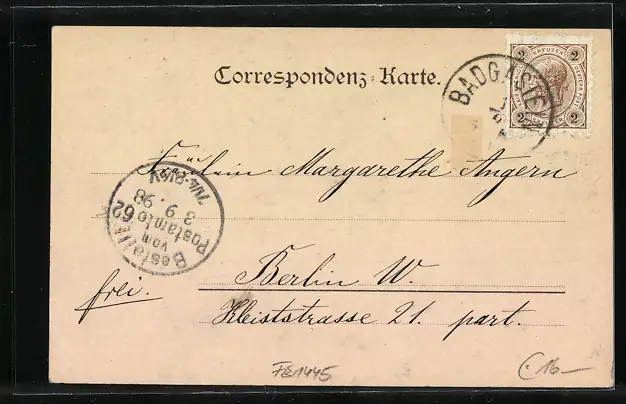 Correspondenz-Karte.
BADGASTEI
2 KREUZER 2
2 2
Fräulein Margarethe Angern
Bestellt
vom
Postamte 62
3 9. 98
7¼-8½V
Berlin W.
frei.
Kleiststrasse 21. part.
FE1445
16—